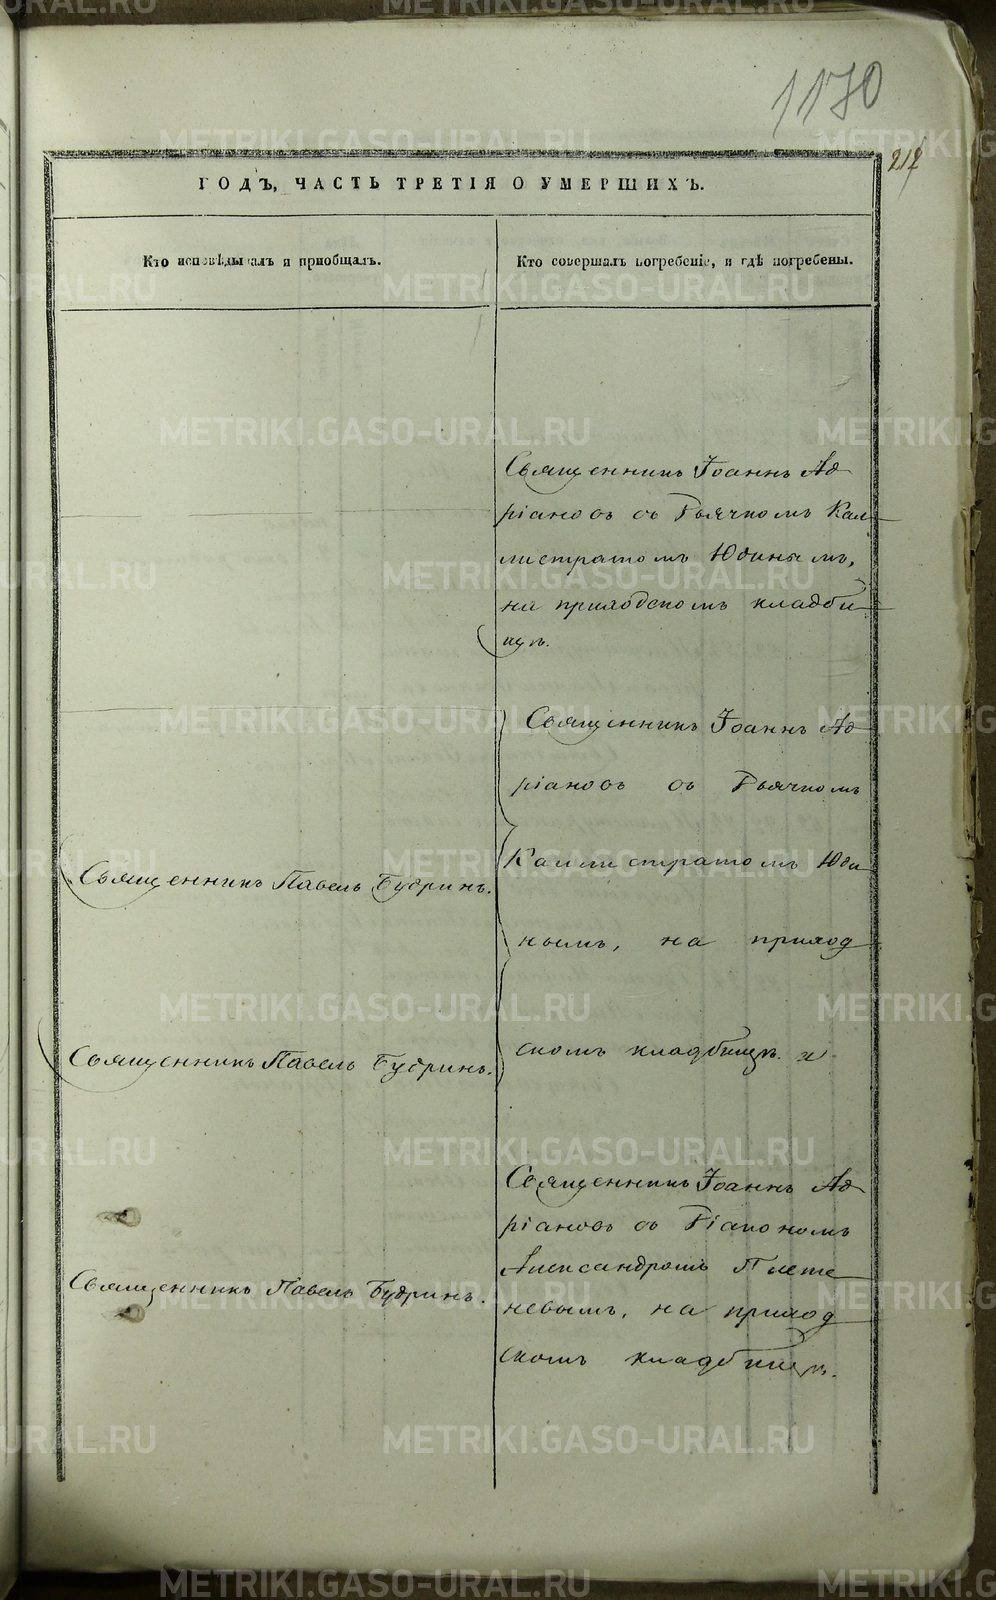 1170
217
ГОДЪ, ЧАСТЬ ТРЕТІЯ О УМЕРШИХЪ.
Кто исповѣдывалъ и приобщалъ.
Кто совершалъ погребеніе, и гдѣ погребены.
Священникъ Іоаннъ Ад
ріановъ съ Дьячкомъ Кал
листратомъ Юдинымъ,
на приходскомъ кладби
щѣ.
Священникъ Іоаннъ Ад
ріановъ съ Дьячкомъ
Каллистратомъ Юди
нымъ, на приход
скомъ кладбищѣ.
Священникъ Павелъ Будринъ.
Священникъ Павелъ Будринъ.
Священникъ Іоаннъ Ад
ріановъ съ Діакономъ
Александромъ Плете
невымъ, на приход
скомъ кладбищѣ.
Священникъ Павелъ Будринъ.
METRIKI.GASO-URAL.RU